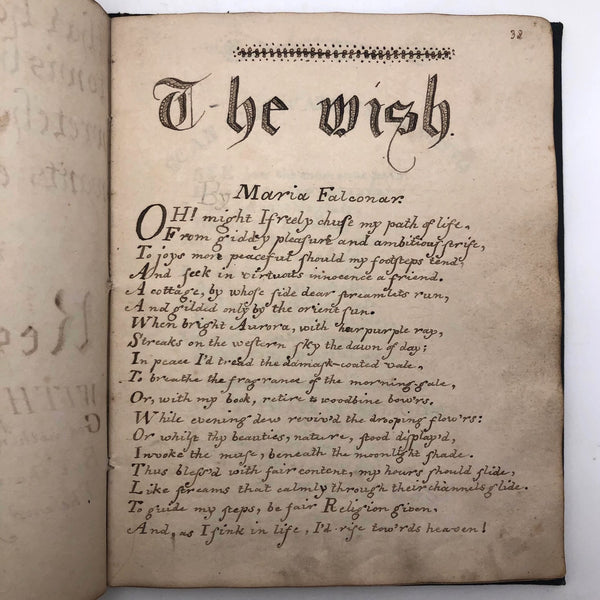 38
The wish.
By Maria Falconar.
OH! might I freely chuse my path of life,
From giddy pleasure and ambitious strife,
To joys more peaceful should my footsteps tend,
And seek in virtuous innocence a friend.
A cottage, by whose side dear streamlets run,
And gilded only by the orient sun.
When bright Aurora, with her purple ray,
Streaks on the western sky the dawn of day;
In peace I'd tread the damask-coated vale,
To breathe the fragrance of the morning gale,
Or, with my book, retire to woodbine bow'rs.
While evening dew reviv'd the drooping flow'rs:
Or whilst thy beauties, nature, stood display'd,
Invoke the muse, beneath the moonlight shade.
Thus bless'd with fair content, my hours should glide,
Like streams that calmly through their channels glide.
To guide my steps, be fair Religion given,
And, as I sink in life, I'd rise tow'rds heaven!